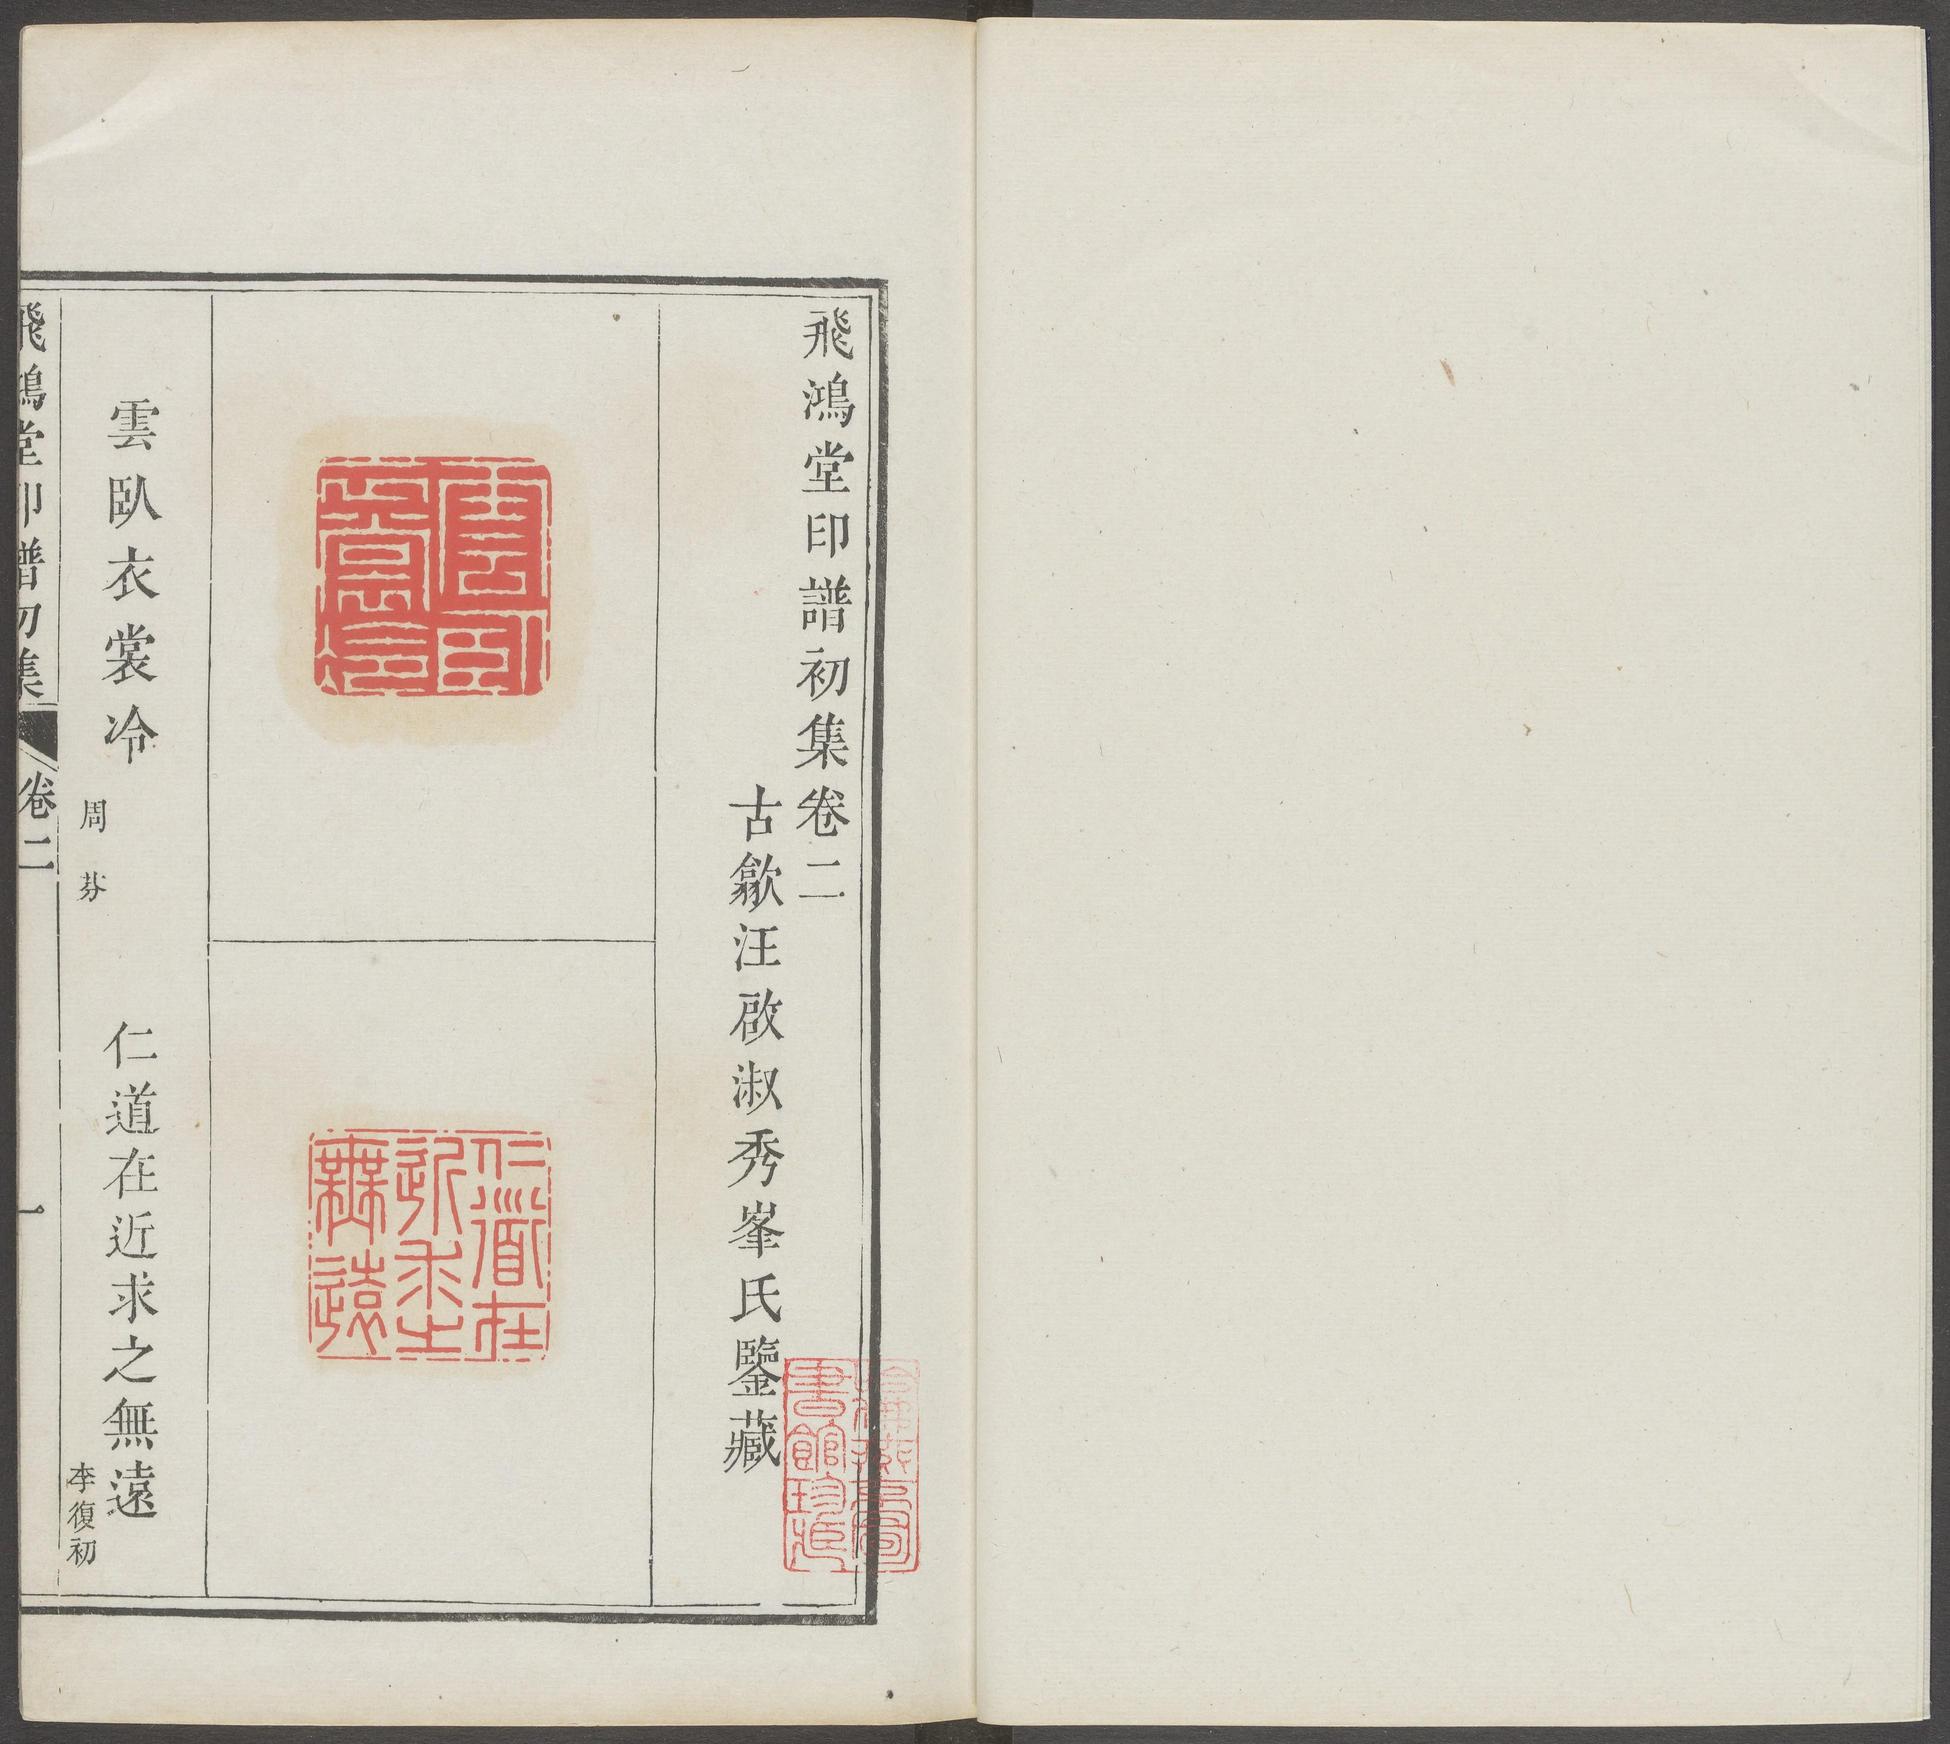 飛鴻堂印譜初集卷二
古歙汪啟淑秀峯氏鑒藏
仁道在
近求之
無遠
雲臥衣裳冷
周芬
仁道在近求之無遠
李復初
飛鴻堂印譜初集
卷二
一
書館珍藏